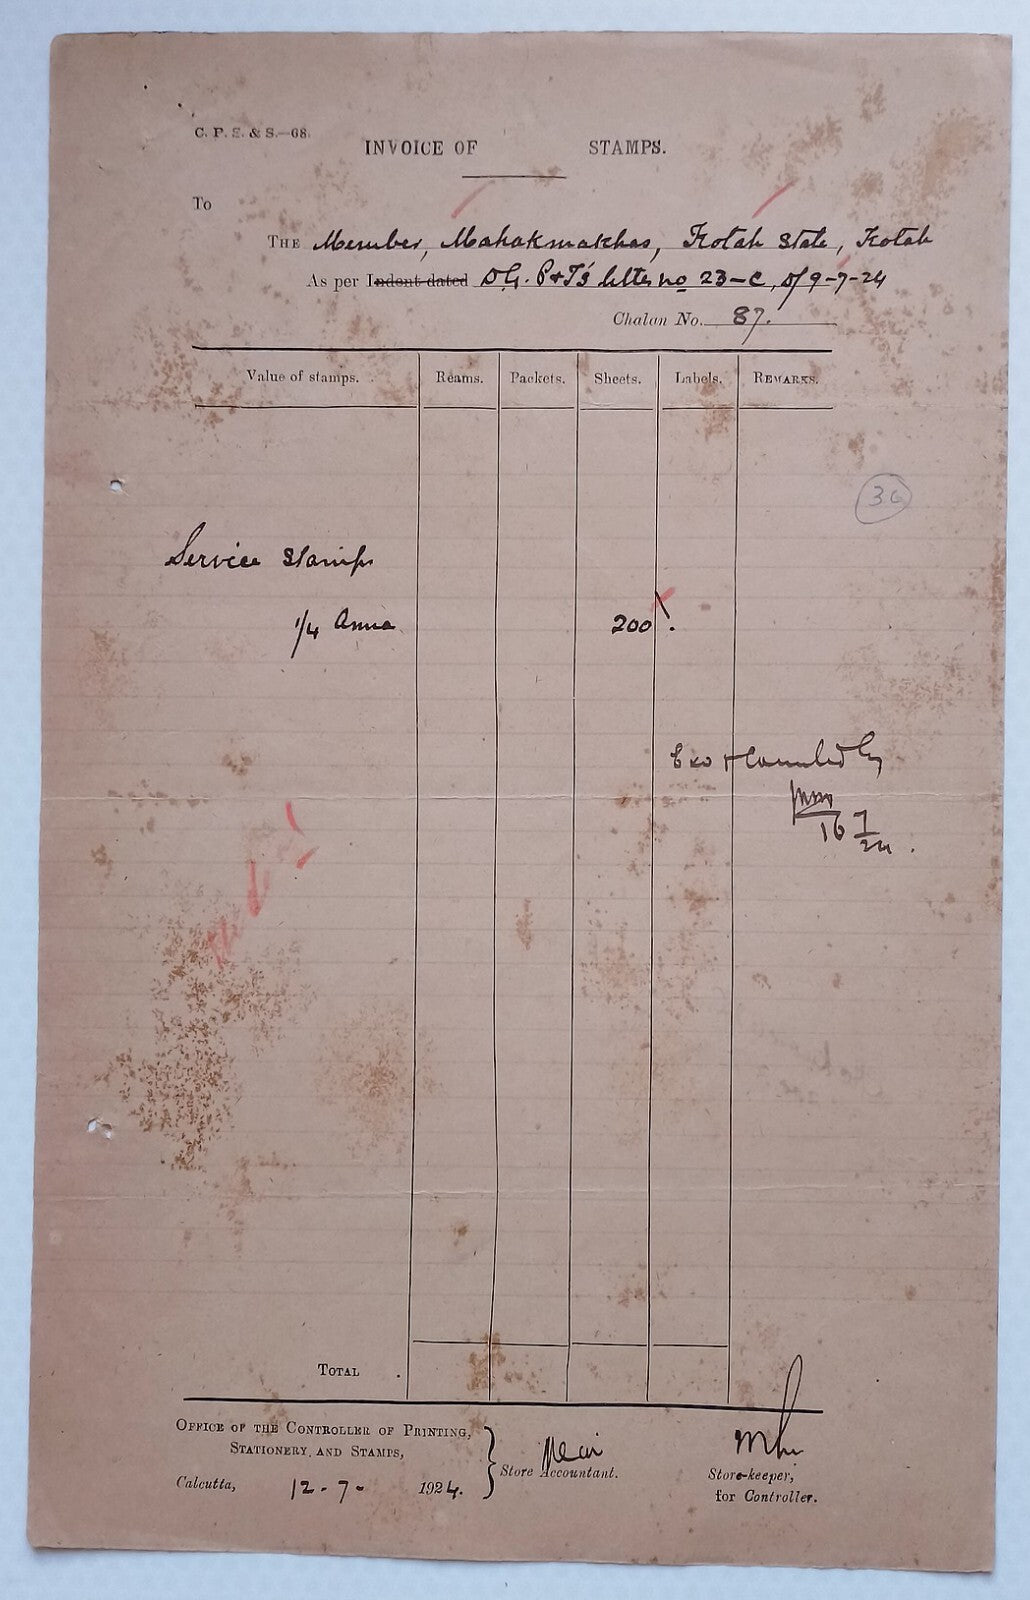 C. P. S. & S.—68.
INVOICE OF STAMPS.
To
THE Member, Mahakmakhas, Kotah State, Kotah
As per Indent dated D.G. P&T's letter no 23-C, d/9-7-24
Chalan No. 87.
Value of stamps. Reams. Packets. Sheets. Labels. REMARKS.
36
Service Stamps
1/4 Anna 200
Counted by
16 7/24.
TOTAL
OFFICE OF THE CONTROLLER OF PRINTING,
STATIONERY, AND STAMPS,
Store Accountant. Store-keeper,
Calcutta, 12-7- 1924.
for Controller.